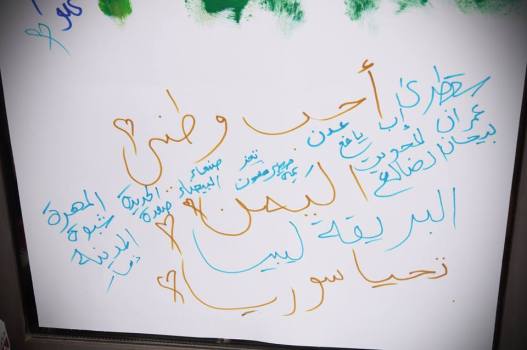 أحب وطني
سقطرى
عدن يافع إب عمران
المحويت بيحان الضالع
تعز حضرموت
صنعاء البيضاء
الحديدة صعدة
المهرة
شبوة
المدينة
اليمن
البريقة ليبيا
تحيا سوريا